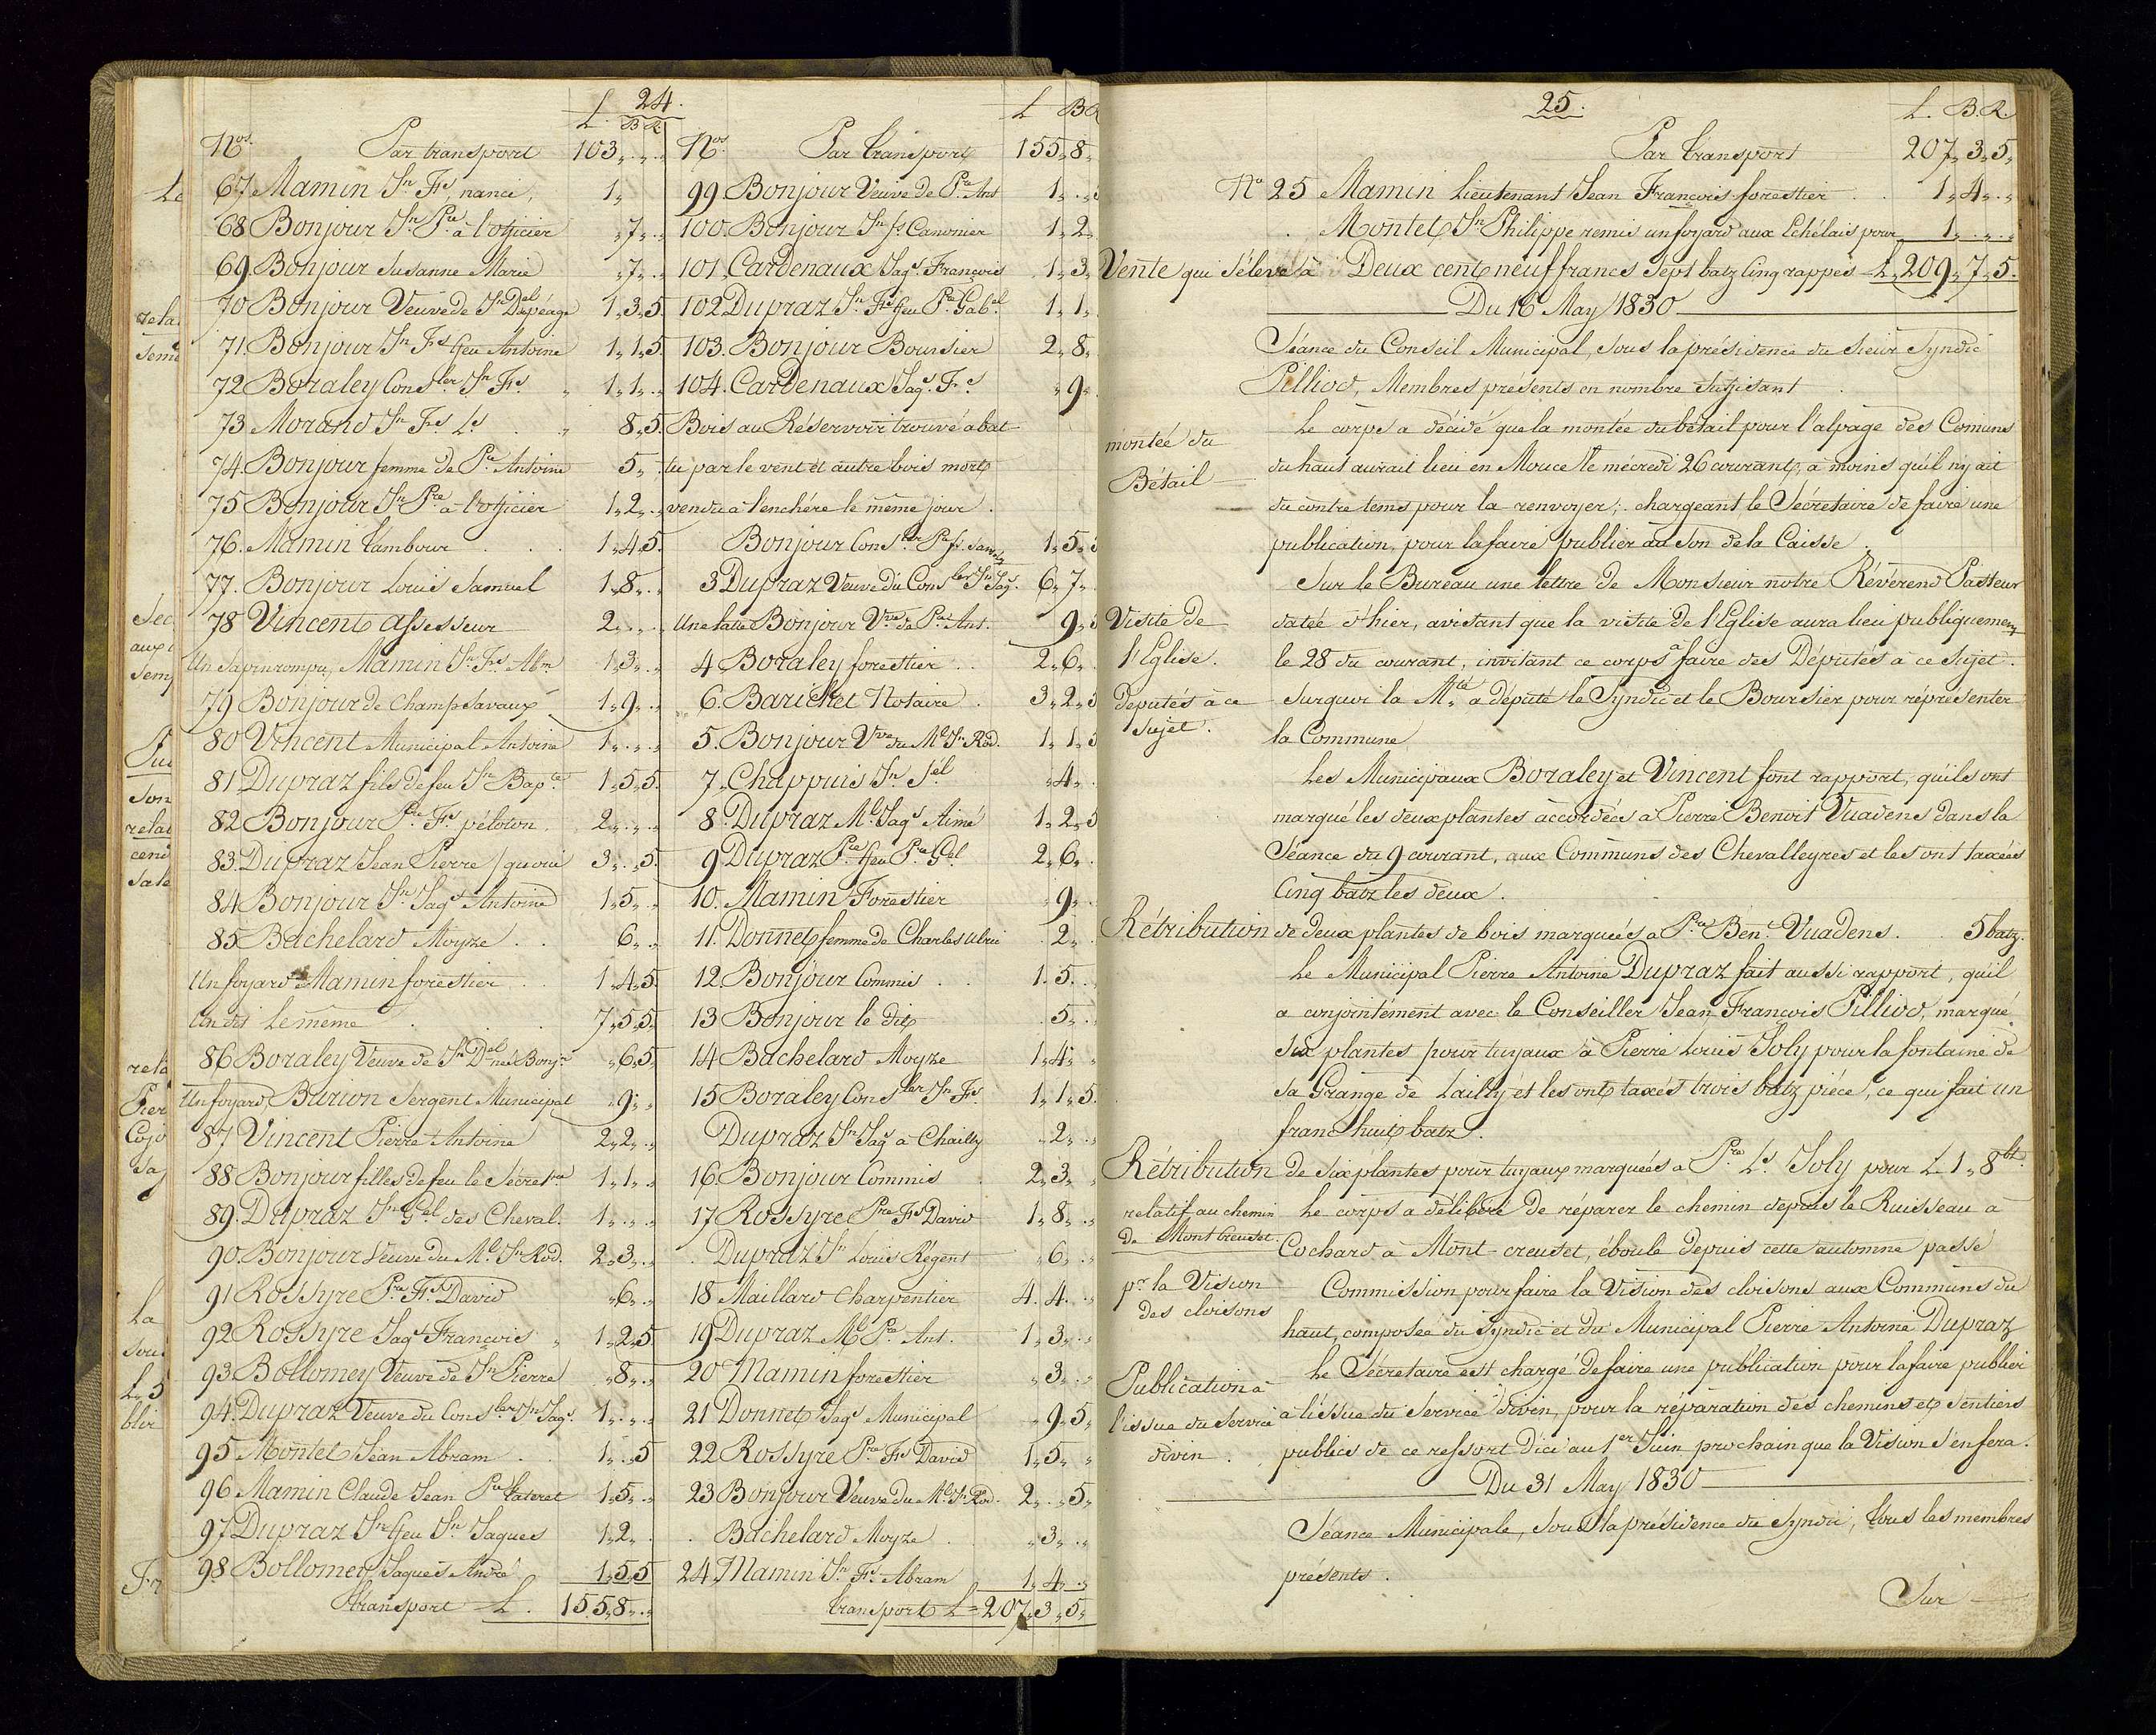 24.
L. B R
Nos. Par transport 103„.„.
67 Mamin Jn Fs, nanci, 1„
68 Bonjour Jn Pre à l'officier „7„.
69. Bonjour Susanne Marie „7„.
70 Bonjour Veuve de Jn Del péage 1„3„5.
71. Bonjour Jn Fs feu Antoine 1„1„5.
72 Boraley Consler Jn Fs. „ 1„1„.
73 Morand Jn Fs Ls . . „ 8„5.
74. Bonjour femme de Pre Antoine 5„.
75 Bonjour Jn Pre à l'officier 1„2„.
76. Mamin tambour . . . 1„4„5.
77. Bonjour Louis Samuel 1„8„.
78 Vincent assesseur 2„.„.
Un sapin rompu, Mamin Jn Frs Abm 1„3„.
79 Bonjour de Champsavaux 1„9„.
80 Vincent Municipal Antoine 1„.„.
81 Dupraz fils de feu Jn Bapte 1„5„5.
82 Bonjour Pre Fs péloton. 2„.„.
83. Dupraz Jean Pierre 3„.„5.
84 Bonjour Jn Jaqs Antoine 1„5„.
85 Bachelard Moyze . . 6„.
Un foyard Mamin forestier . . 1„4„5.
Un dit Le même . . 7„5„5.
86 Boraley Veuve de Jn Del née Bonjr „6„5.
Un foyard, Burion Sergent Municipal „9„.
87 Vincent Pierre Antoine 2„2„.
88 Bonjour filles de feu le Sécretre 1„1„.
89. Dupraz Jn Gel des Cheval. 1„.„.
90. Bonjour Veuve du Ml. Jn Rod. 2„3„.
91 Rossyre Pre Fs David „6„.
92 Rossyre Jaqs François „ 1„2„5.
93 Bollomey Veuve de Jn Pierre „8„.
94. Dupraz Veuve du Consler Jn Jaqs. 1„.„.
95 Montet Jean Abram . . 1„.„5
96 Mamin Claude Jean Pre 1„5„.
97 Dupraz Jn feu Jn Jaques 1„2„.
98 Bollomey Jaques André 1„5„5
Transport L. 155„8„.
L B R
Nos. Par transport 155„8„
99 Bonjour Veuve de Pre Ant 1„.„
100. Bonjour Jn fs Canonier 1„2„
101. Cardenaux Jaqs. François 1„3„
102 Dupraz Jn Fs feu Pre Gabel. 1„1„
103. Bonjour Boursier 2„8„
104. Cardenaux Jaqs. Frs „9„
Bois au Réservoir trouvé abat-
tu par le vent et autre bois mort
vendu à l'enchére le même jour.
Bonjour Consler Pre fs. Saml 1„5„5
3 Dupraz Veuve du Consler Jn Jaqs. 6„7„
Une latte Bonjour Vve de Pre Ant. 9„5
4 Boraley forestier . . 2„6„
6. Barichet Notaire . 3„2„5
5. Bonjour Vve du Ml Jn Rod. 1„1„5
7„ Chappuis Jn Jel „4„
8. Dupraz Ml. Jaqs Aimé 1„2„5
9 Dupraz Pre feu Pre Gel 2„6„
10. Mamin Forestier „9„
11. Donnet femme de Charles Ulric . 2„
12 Bonjour Commis . . 1„5„.
13 Bonjour le dit . 5„.
14 Bachelard Moyze 1„4„
15 Boraley Consler Jn Fs. 1„1„5.
Dupraz Jn Jaqs à Chailly „2„.
16 Bonjour Commis 2„3„
17 Rossyre Pre Fs David 1„8„.
. Dupraz Jn Louis Régent „6„.
18 Maillard Charpentier 4„4„.
19 Dupraz Ml. Pre Ant. 1„3„.
20 Mamin forestier „3„.
21 Donnet Jaqs Municipal „9„5„
22 Rossyre Pre Fs David 1„5„
23 Bonjour Veuve du Ml. Jn Rod. 2„.„5„
. Bachelard Moyze . „3„.
24„ Mamin Jn Fs. Abram 1„4„.
transport L= 207„3„5„
25.
L. B. R.
Par transport 207„3„5„
No 25 Mamin Lieutenant Jean François forestier . . 1„4„.
. Montet Jn Philippe remis un foyard aux Echélais pour 1„.„.
Vente qui s'éleve à Deux cent neuf francs sept batz cinq rappes L. 209„7„5.
Du 16 May 1830
Séance du Conseil Municipal, sous la présidence du Sieur Syndic
Pilliod, Membres présents en nombre suffisant
montée du
Bétail
Le corps a décidé que la montée du bétail pour l'alpage des Comuns
du haut aurait lieu en Mouce le mécredi 26 courant, à moins qu'il n'y ait
du contre tems pour la renvoyer; chargeant le Sécretaire de faire une
publication, pour la faire publier au son de la Caisse.
Visite de
l'Eglise.
deputés à ce
sujet.
Sur le Bureau une lettre de Monsieur notre Révérend Pasteur
datée d'hier, avisant que la visite de l'Eglise aura lieu publiquement
le 28 du courant, invitant ce corps à faire des Députés à ce sujet.
surquoi la Mté. a député le Syndic et le Boursier pour réprésenter
la Commune
Les Municipaux Boraley et Vincent font rapport, qu'ils ont
marqué les deux plantes accordées à Pierre Benoit Vuadens dans la
Séance du 9 courant, aux Communs des Chevalleyres et les ont taxées
Cinq batz les deux.
Rétribution de deux plantes de bois marquées à Pre Bent. Vuadens. 5 batz.
Le Municipal Pierre Antoine Dupraz fait aussi rapport, qu'il
a conjointément avec le Conseiller Jean François Pilliod, marqué
six plantes pour tuyaux à Pierre Louis Joly pour la fontaine de
sa Grange de Lailly et les ont taxés trois batz piéce, ce qui fait un
franc huit batz.
Rétribution de six plantes pour tuyaux marquées à Pre Ls Joly pour L. 1„8 bt.
relatif au chemin
de Mont Creuset.
Le corps a délibéré de réparer le chemin depuis le Ruisseau à
Cochard à Mont-creuset, éboulé depuis cette automne passé
pr la Vision
des cloisons
Commission pour faire la Vision des cloisons aux Communs du
haut, composée du Syndic et du Municipal Pierre Antoine Dupraz
Publication à
l'issue du Service
divin.
Le Sécretaire est chargé de faire une publication pour la faire publier
à l'issue du Service divin, pour la réparation des chemins et sentiers
publics de ce ressort d'ici au 1er Juin prochain que la Vision s'en fera.
Du 31 May 1830
Séance Municipale, sous la présidence du Syndic, tous les membres
présents.
Sur